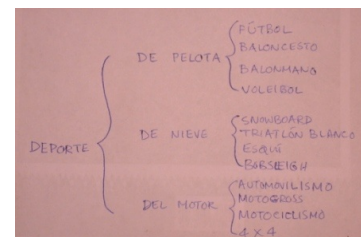 DEPORTE
DE PELOTA
FÚTBOL
BALONCESTO
BALONMANO
VOLEIBOL
DE NIEVE
SNOWBOARD
TRIATLÓN BLANCO
ESQUÍ
BOBSLEIGH
DEL MOTOR
AUTOMOVILISMO
MOTOCROSS
MOTOCICLISMO
4 X 4